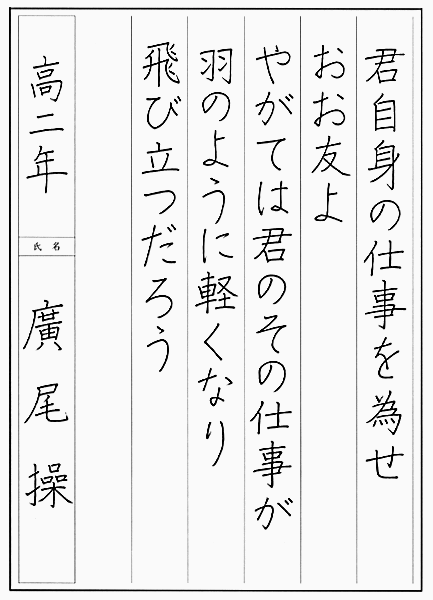 君自身の仕事を為せ
おお友よ
やがては君のその仕事が
羽のように軽くなり
飛び立つだろう
高二年
氏名
廣尾操